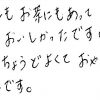 も お茶にもあって
おいしかったです
ちょうどよくて おや
です。